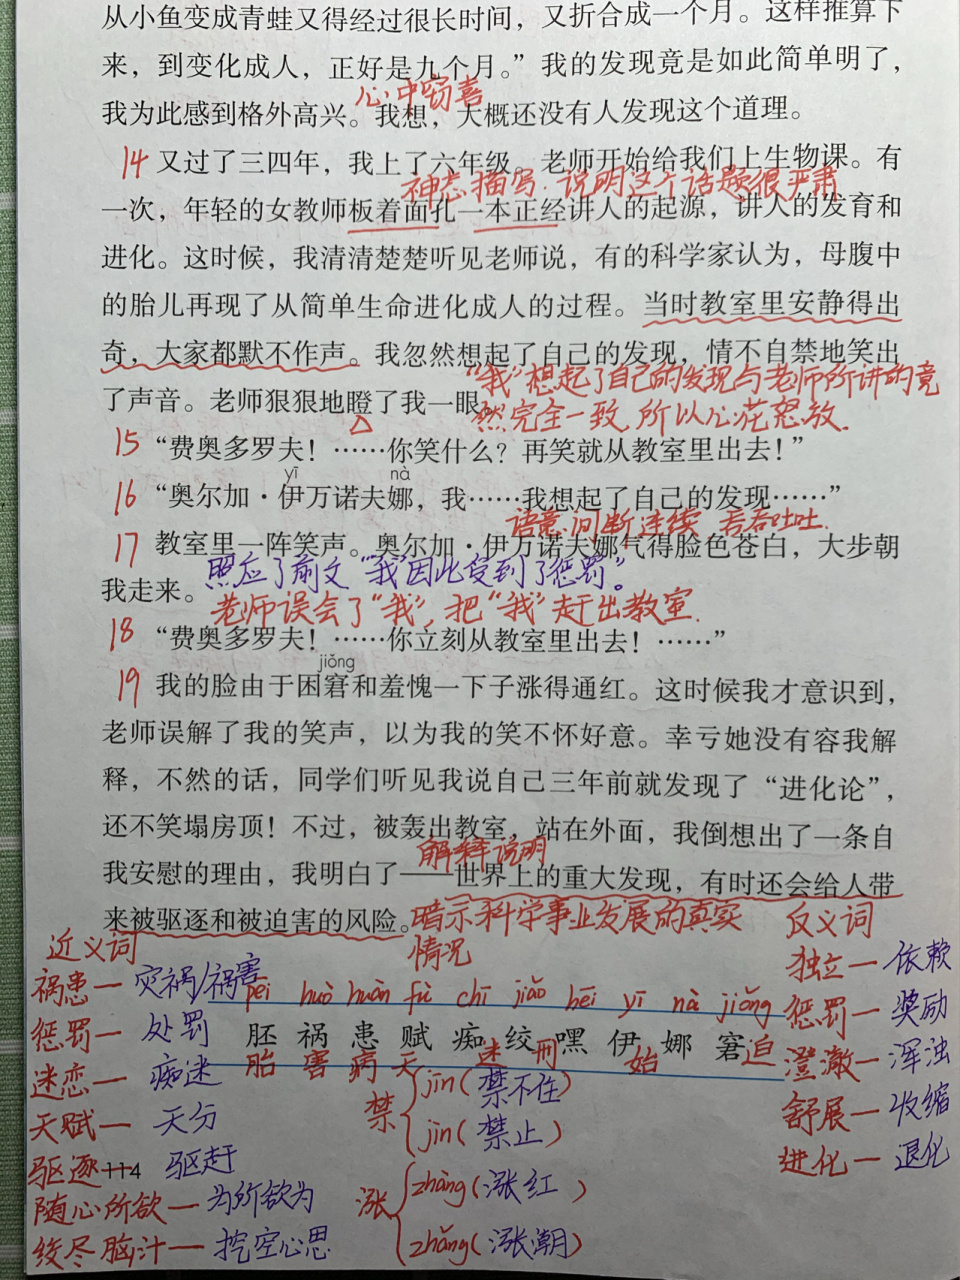 从小鱼变成青蛙又得经过很长时间，又折合成一个月。这样推算下
来，到变化成人，正好是九个月。”我的发现竟是如此简单明了，
心中窃喜
我为此感到格外高兴。我想，大概还没有人发现这个道理。
14 又过了三四年，我上了六年级。老师开始给我们上生物课。有
神态描写，说明这个话题很严肃
一次，年轻的女教师板着面孔一本正经讲人的起源，讲人的发育和
进化。这时候，我清清楚楚听见老师说，有的科学家认为，母腹中
的胎儿再现了从简单生命进化成人的过程。当时教室里安静得出
奇，大家都默不作声。我忽然想起了自己的发现，情不自禁地笑出
“我”想起了自己的发现与老师所讲的竟
了声音。老师狠狠地瞪了我一眼。
然完全一致，所以心花怒放.
15 “费奥多罗夫！……你笑什么？再笑就从教室里出去！”
yī nà
16 “奥尔加·伊万诺夫娜，我……我想起了自己的发现……”
语意间断连续 吞吞吐吐.
17 教室里一阵笑声。奥尔加·伊万诺夫娜气得脸色苍白，大步朝
照应了前文“我”因此受到了惩罚”。
我走来。
老师误会了“我”，把“我”赶出教室.
18 “费奥多罗夫！……你立刻从教室里出去！……”
jiǒng
19 我的脸由于困窘和羞愧一下子涨得通红。这时候我才意识到，
老师误解了我的笑声，以为我的笑不怀好意。幸亏她没有容我解
释，不然的话，同学们听见我说自己三年前就发现了“进化论”，
还不笑塌房顶！不过，被轰出教室，站在外面，我倒想出了一条自
解释说明
我安慰的理由，我明白了——世界上的重大发现，有时还会给人带
来被驱逐和被迫害的风险。
暗示科学事业发展的真实
情况
近义词
祸患— 灾祸/祸害
惩罚— 处罚
迷恋— 痴迷
天赋— 天分
驱逐— 驱赶
随心所欲— 为所欲为
绞尽脑汁— 挖空心思
pēi huò huàn fù chī jiǎo hēi yī nà jiǒng
胚 祸 患 赋 痴 绞 嘿 伊 娜 窘
胎 害 病 天 迷 刑 始 迫
禁 jīn（禁不住）
jìn（禁止）
涨 zhàng（涨红）
zhǎng（涨潮）
反义词
独立— 依赖
惩罚— 奖励
澄澈— 浑浊
舒展— 收缩
进化— 退化
114